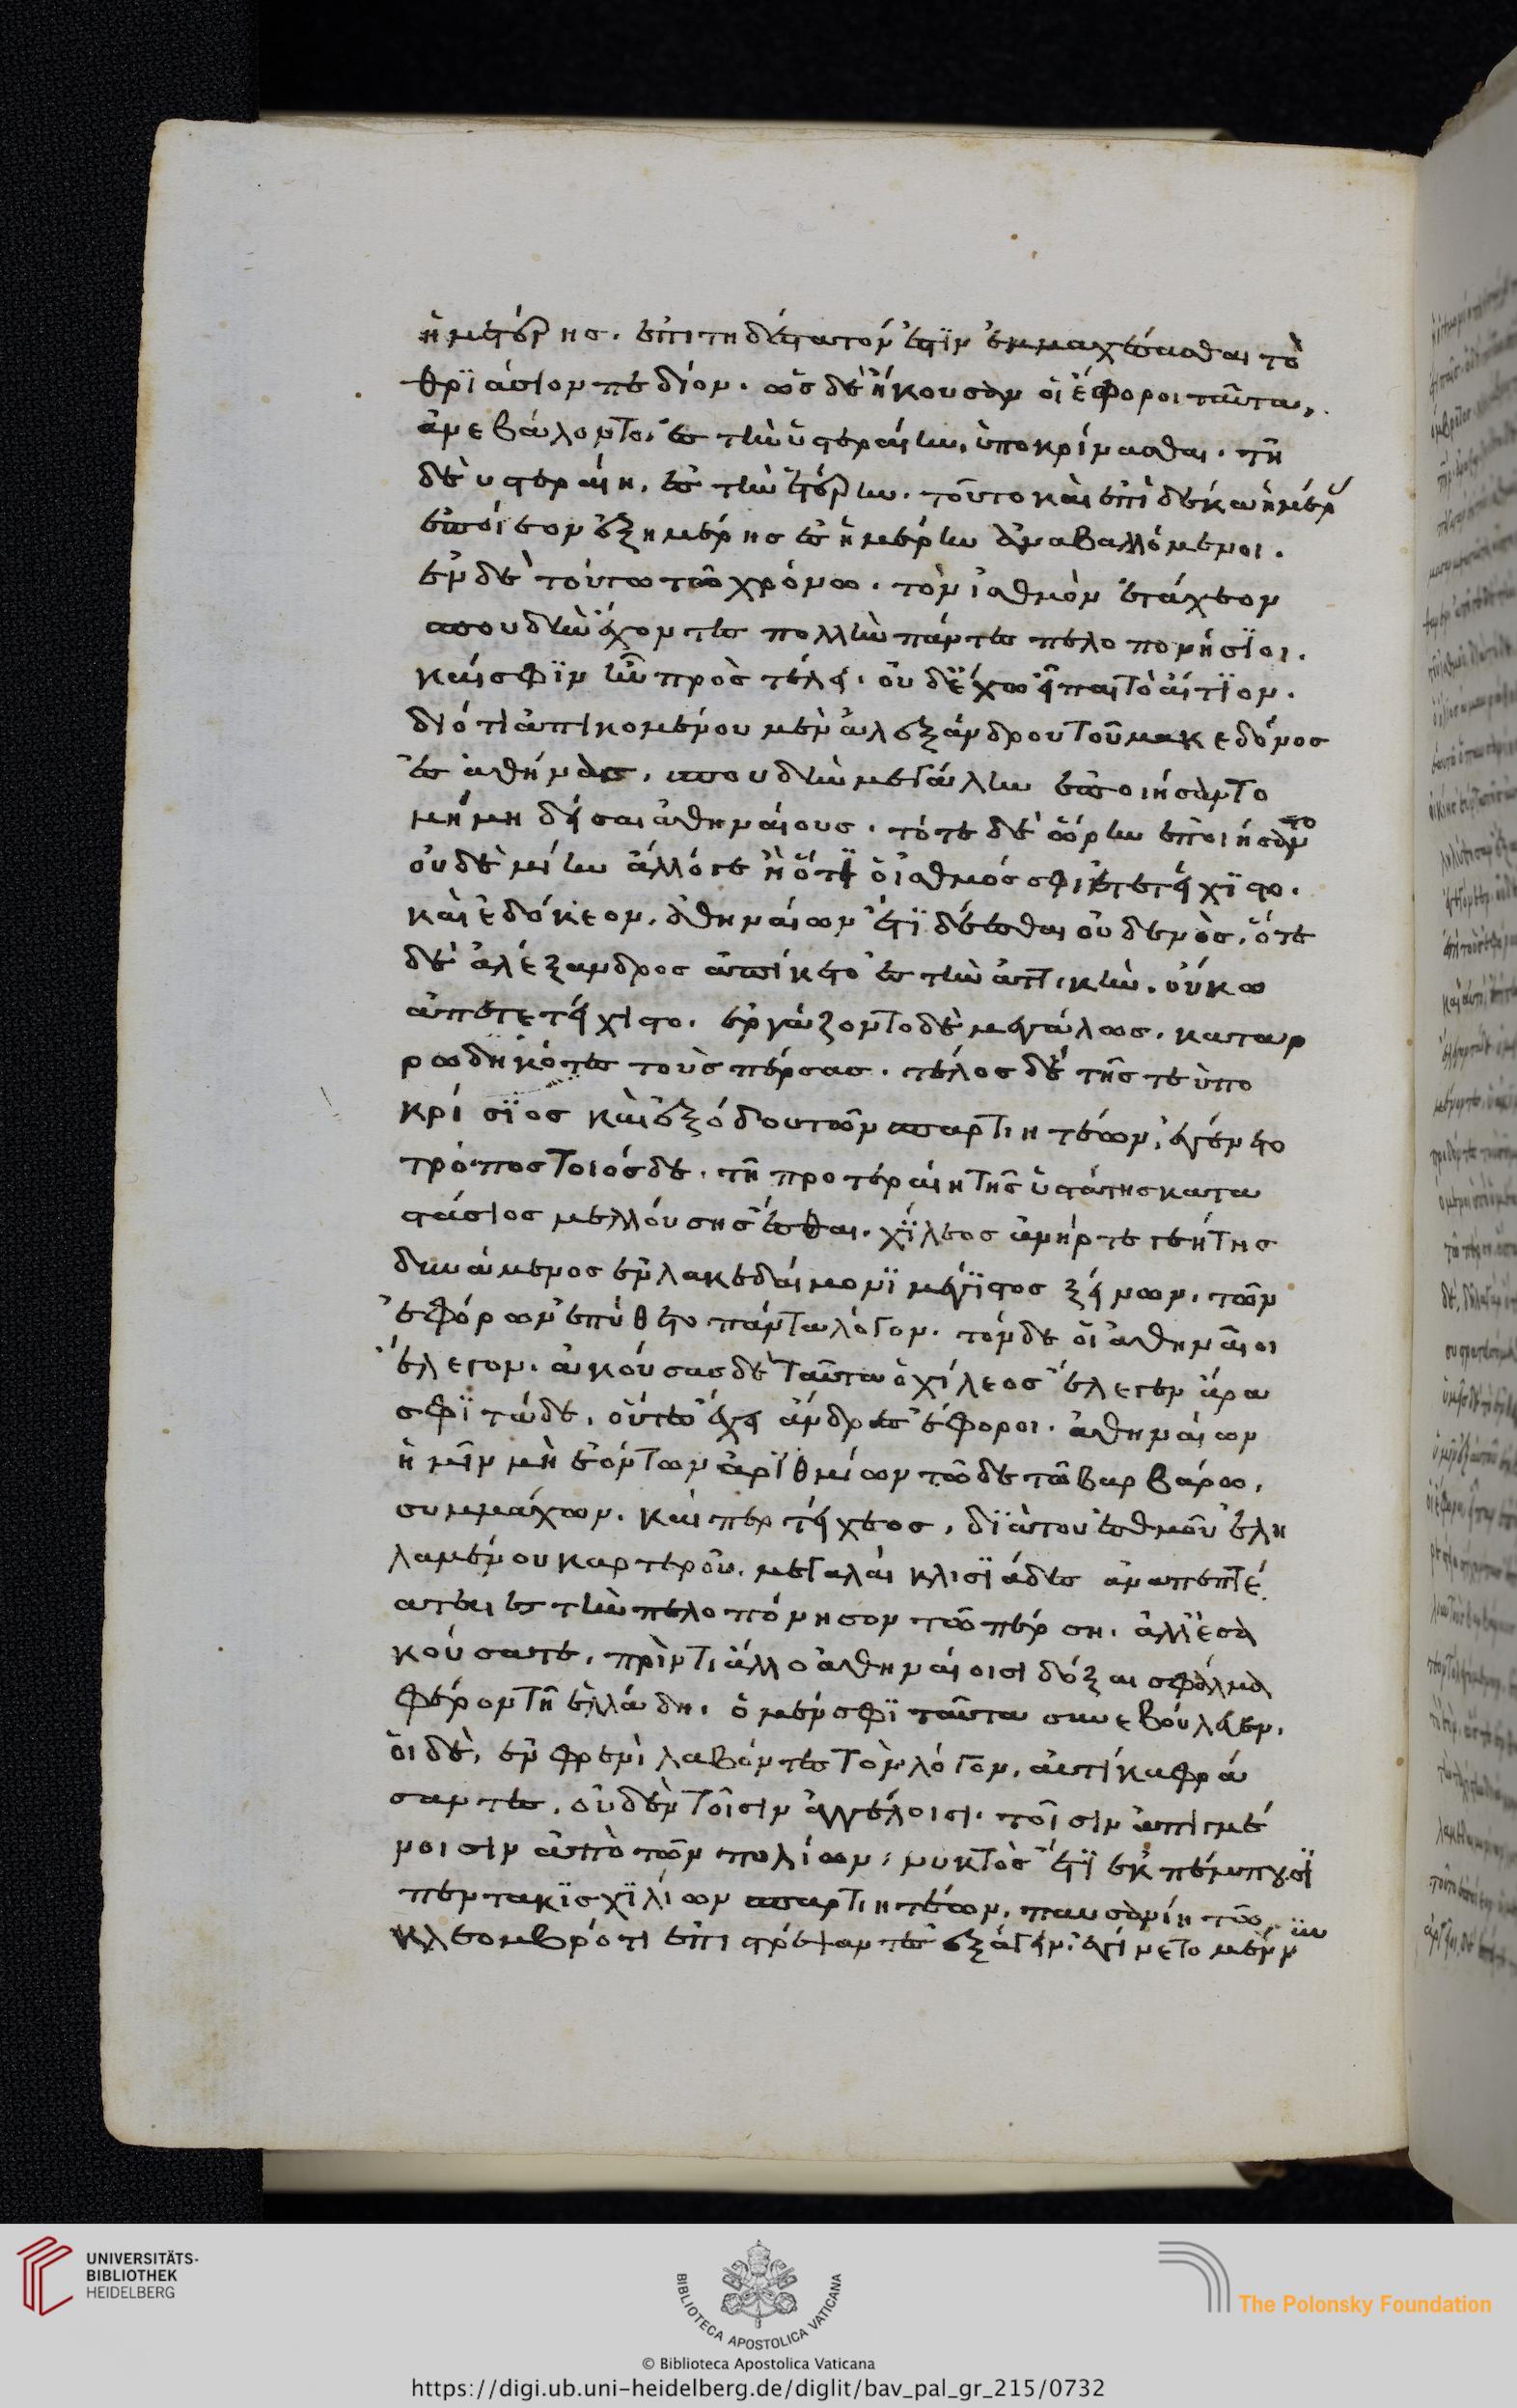 ἡμετέρης. ἐπιτηδεώτατόν ἐστϊν ἐμμαχέσασθαι τὸ
θρϊάσιον πεδίον. ὡς δὲ ἤκουσαν οἱ ἔφοροι ταῦτα,
ἀνεβάλοντο, ἐς τὴν ὑστεραίην, ὑποκρίνασθαι. τῆ
δὲ ὑστεραίη, ἐς τὴν ἑτέρην. τοῦτο καὶ ἐπὶ δέκα ἡμέρ
ἐποίεον ἐξ ἡμέρης ἐς ἡμέρην ἀναβαλλόμενοι.
ἐν δὲ τούτω τῶ χρόνω. τὸν ἰσθμὸν ἐτείχεον
σπουδὴν ἔχοντες πολλὴν πάντες πελοπονήσϊοι.
καί σφϊν ἦν πρὸς τέλεϊ. οὐδ' ἔχω εἶπαι τὸ αἴτϊον.
διότι ἀπικομένου μὲν ἀλεξάνδρου τοῦ μακεδόνος
ἐς ἀθήνας, σπουδὴν μεγάλην ἐποιήσαντο
μὴ μηδίσαι ἀθηναίους. τότε δὲ ὤρην ἐποιήσαντο
οὐδὲ μίην ἄλλό γε ἢ ὅτϊ ὁ ἰσθμός σφι ἐτετείχϊστο.
καὶ ἐδόκεον, ἀθηναίων ἔτϊ δέεσθαι οὐδενὸς. ὅτε
δὲ ἀλέξανδρος ἀπίκετο ἐς τὴν ἀττικὴν. οὔκω
ἀπετετείχιστο. ἐργάζοντο δὲ μεγάλως. καταρ
ρωδηκότες τοὺς πέρσας. τέλος δὲ τῆς τε ὑπο
κρίσϊος καὶ ἐξόδου τῶν σπαρτιητέων, ἐγένετο
τρόπος τοιόσδε. τῆ προτεραίη τῆς ὑστάτης κατα
στάσιος μελλούσης ἔσεσθαι. χϊλεος ἀνὴρ τεγεήτης
δυνάμενος ἐν λακεδαίμονϊ μέγϊστος ξείνων. τῶν
ἐφόρων ἐπύθετο πάντα λόγον. τόνδε οἱ ἀθηναῖοι
ἔλεγον. ἀκούσας δὲ ταῦτα ὁ χίλεος ἔλεγεν ἄρα
σφϊ τάδε, οὕτω ἔχει ἄνδρες ἔφοροι. ἀθηναίων
ἡμῖν μὴ ἐόντων ἀρϊθμίων τῶ δὲ τῶ βαρβάρω,
συμμάχων. καίπερ τείχεος, δϊὰ τοῦ ἰσθμοῦ ἐλη
λαμένου καρτεροῦ. μεγαλαι κλισϊάδες ἀναπεπτέ
αται ἐς τὴν πελοπόνησον τῶ πέρση. ἀλλ' ἐσα
κούσατε, πρίν τι ἄλλο ἀθηναίοισι δόξαι σφάλμα
φέρον τῆ ἑλλάδη. ὁ μέν σφϊ ταῦτα συνεβούλευεν.
οἱ δὲ, ἐν φρενὶ λαβόντες τὸν λόγον, αὐτίκα φρά
σαντες, οὐδὲν τοῖσιν ἀγγέλοισι. τοῖσιν ἀπιγμέ
νοισιν ἀπὸ τῶν πολίων, νυκτὸς ἔτϊ ἐκπέμπουσϊ
πεντακϊσχϊλίων σπαρτιητέων. παυσανίη τῶ
κλεομβρότ ἐπιτρέψαντες ἐξάγειν. ἐγίνετο μέν νυν